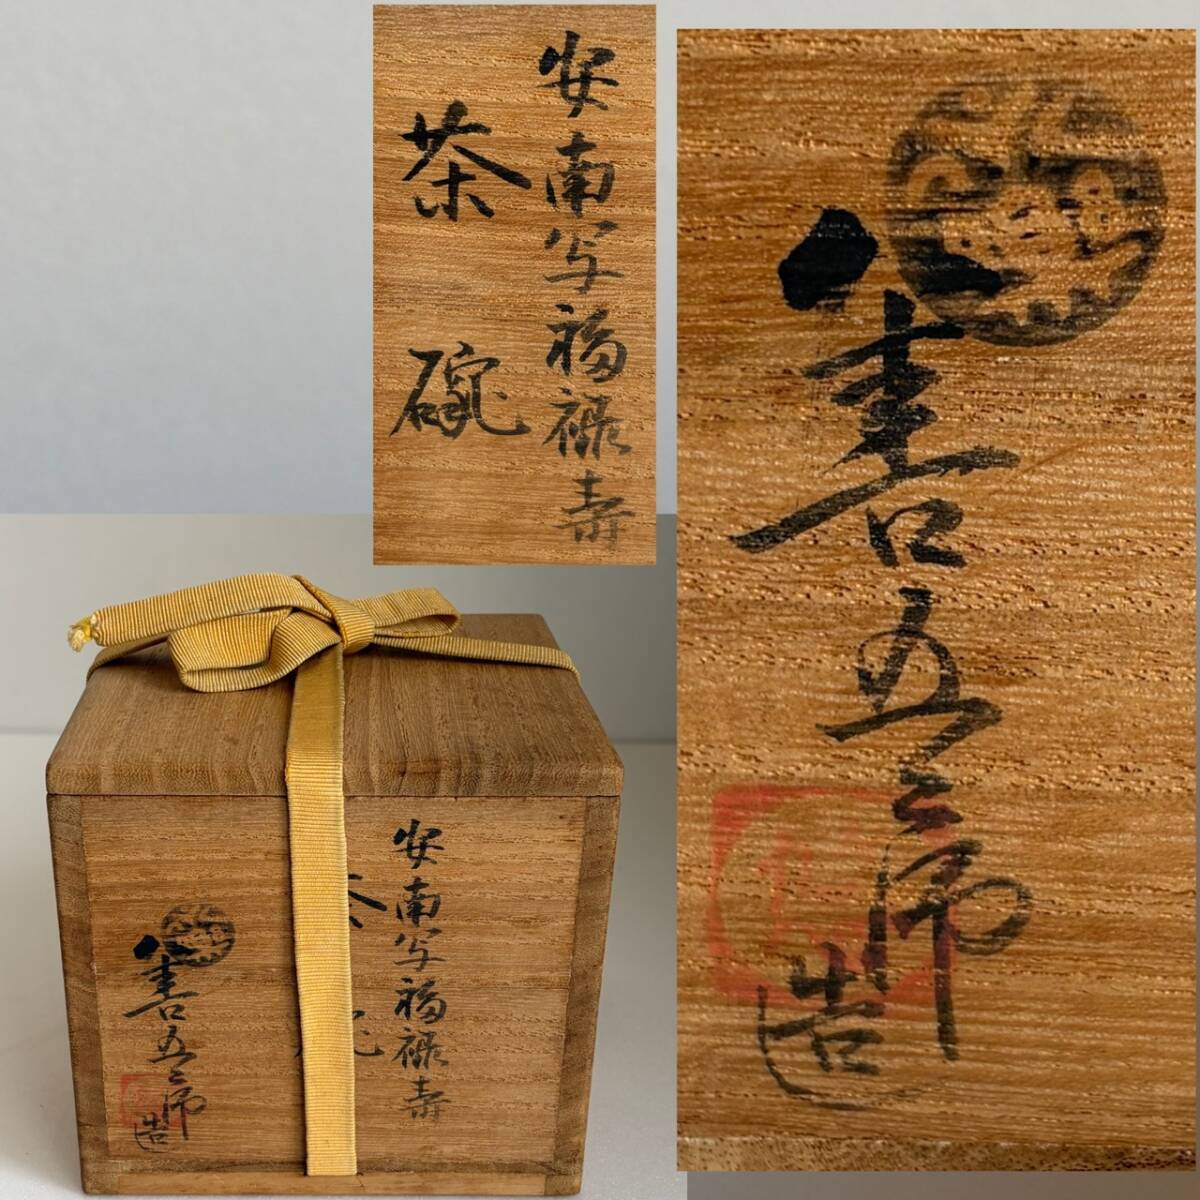 安南写福禄寿
茶碗
善五郎造
安南写福禄寿
茶碗
善五郎造